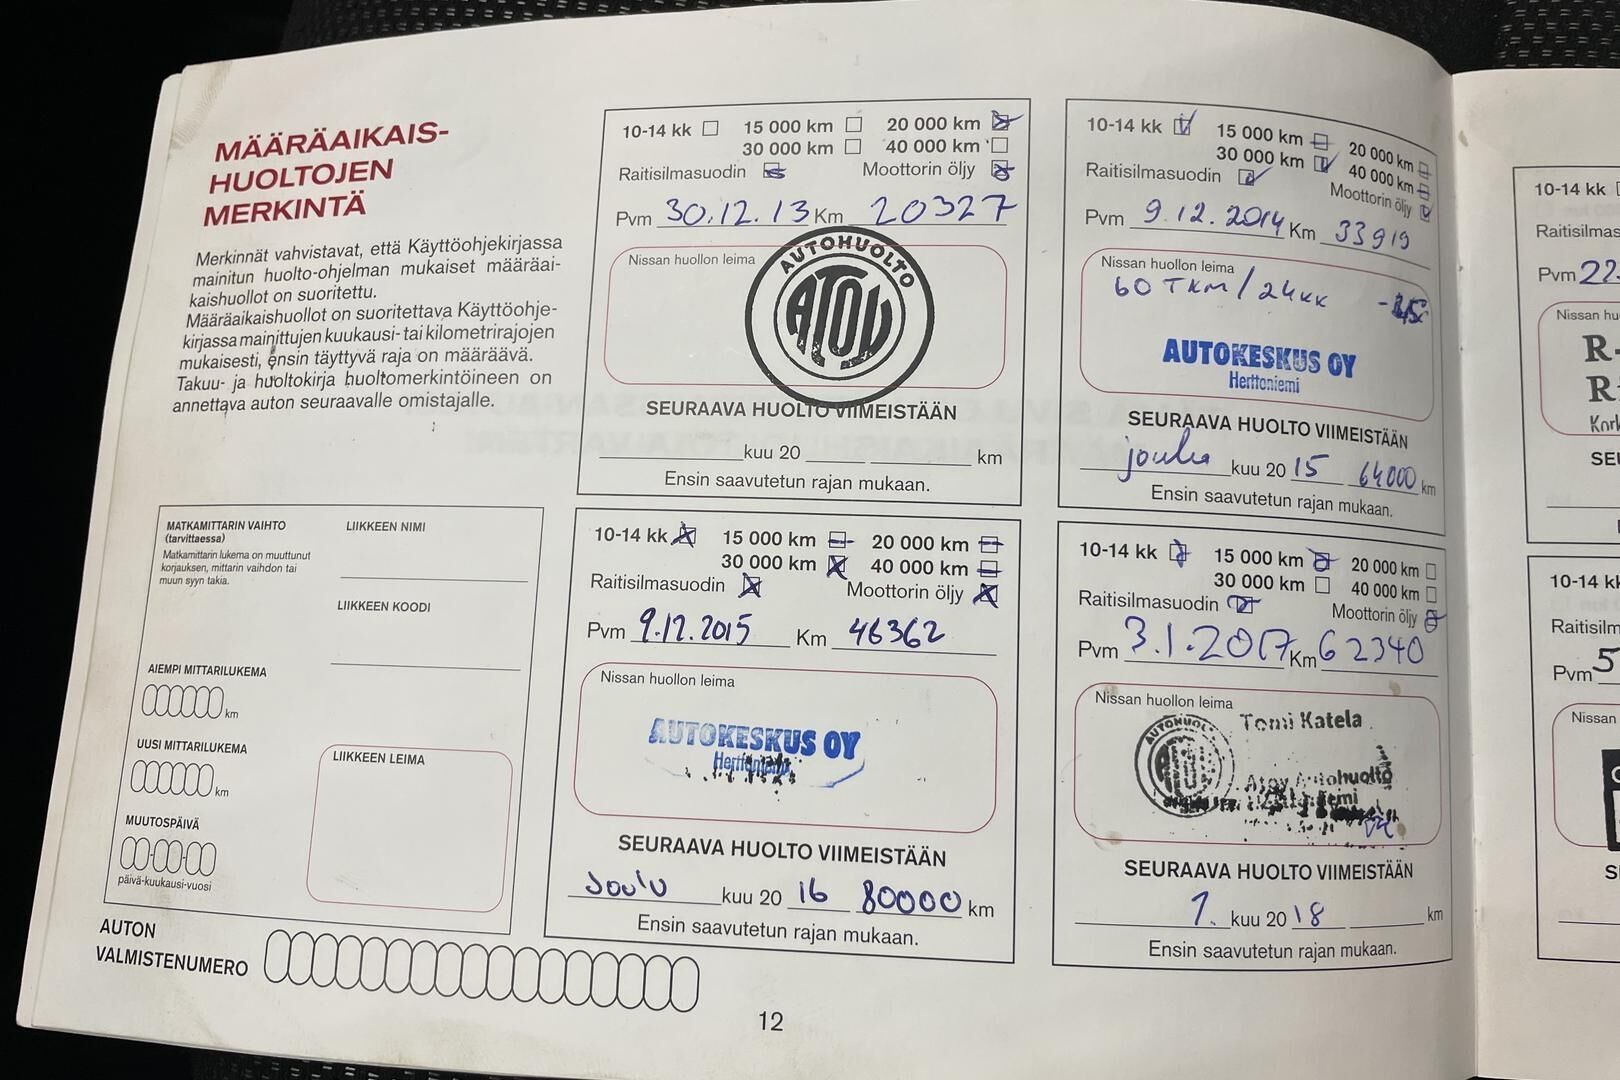 MÄÄRÄAIKAIS-
HUOLTOJEN
MERKINTÄ
Merkinnät vahvistavat, että Käyttöohjekirjassa
mainitun huolto-ohjelman mukaiset määräai-
kaishuollot on suoritettu.
Määräaikaishuollot on suoritettava Käyttöohje-
kirjassa mainittujen kuukausi- tai kilometrirajojen
mukaisesti, ensin täyttyvä raja on määräävä.
Takuu- ja huoltokirja huoltomerkintöineen on
annettava auton seuraavalle omistajalle.
MATKAMITTARIN VAIHTO
(tarvittaessa)
Matkamittarin lukema on muuttunut
korjauksen, mittarin vaihdon tai
muun syyn takia.
LIIKKEEN NIMI
LIIKKEEN KOODI
AIEMPI MITTARILUKEMA
km
UUSI MITTARILUKEMA
km
MUUTOSPÄIVÄ
päivä-kuukausi-vuosi
LIIKKEEN LEIMA
AUTON
VALMISTENUMERO
10-14 kk 15 000 km 20 000 km
30 000 km 40 000 km
Raitisilmasuodin Moottorin öljy
Pvm 30.12.13 Km 20327
Nissan huollon leima
AUTOHUOLTO
ATOY
SEURAAVA HUOLTO VIIMEISTÄÄN
kuu 20 km
Ensin saavutetun rajan mukaan.
10-14 kk 15 000 km 20 000 km
30 000 km 40 000 km
Raitisilmasuodin Moottorin öljy
Pvm 9.12.2014 Km 33919
Nissan huollon leima
60 TKM / 24KK
AUTOKESKUS OY
Herttoniemi
SEURAAVA HUOLTO VIIMEISTÄÄN
joulu kuu 20 15 64000 km
Ensin saavutetun rajan mukaan.
10-14 kk 15 000 km 20 000 km
30 000 km 40 000 km
Raitisilmasuodin Moottorin öljy
Pvm 9.12.2015 Km 46362
Nissan huollon leima
AUTOKESKUS OY
Herttoniemi
SEURAAVA HUOLTO VIIMEISTÄÄN
Joulu kuu 20 16 80000 km
Ensin saavutetun rajan mukaan.
10-14 kk 15 000 km 20 000 km
30 000 km 40 000 km
Raitisilmasuodin Moottorin öljy
Pvm 3.1.2017 Km 62340
Nissan huollon leima
AUTOHUOLTO
Tomi Katela
Atoy Autohuolto
SEURAAVA HUOLTO VIIMEISTÄÄN
1. kuu 20 18 km
Ensin saavutetun rajan mukaan.
12
10-14 kk
Raitisilmas
Pvm 22
Nissan hu
R-
Ri
SEU
10-14 kk
Raitisilm
Pvm 5
Nissan